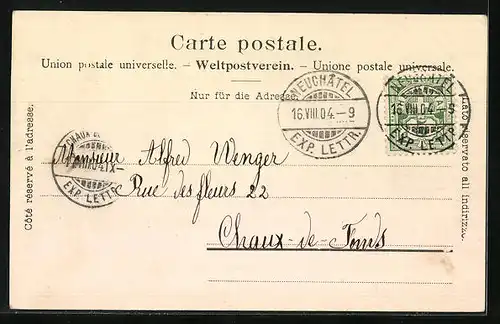 Carte postale.
Union postale universelle. – Weltpostverein. – Unione postale universale.
Nur für die Adresse
NEUCHÂTEL
16.VIII.04.–9
EXP. LETTR.
NEUCHÂTEL
16.VIII.04.–9
EXP. LETTR.
CHAUX
VIII.04.IX–
EXP. LETTR.
Côté réservé à l'adresse.
Lato riservato all indirizzo.
Monsieur Alfred Wenger
Rue des fleurs 22
Chaux-de-Fonds